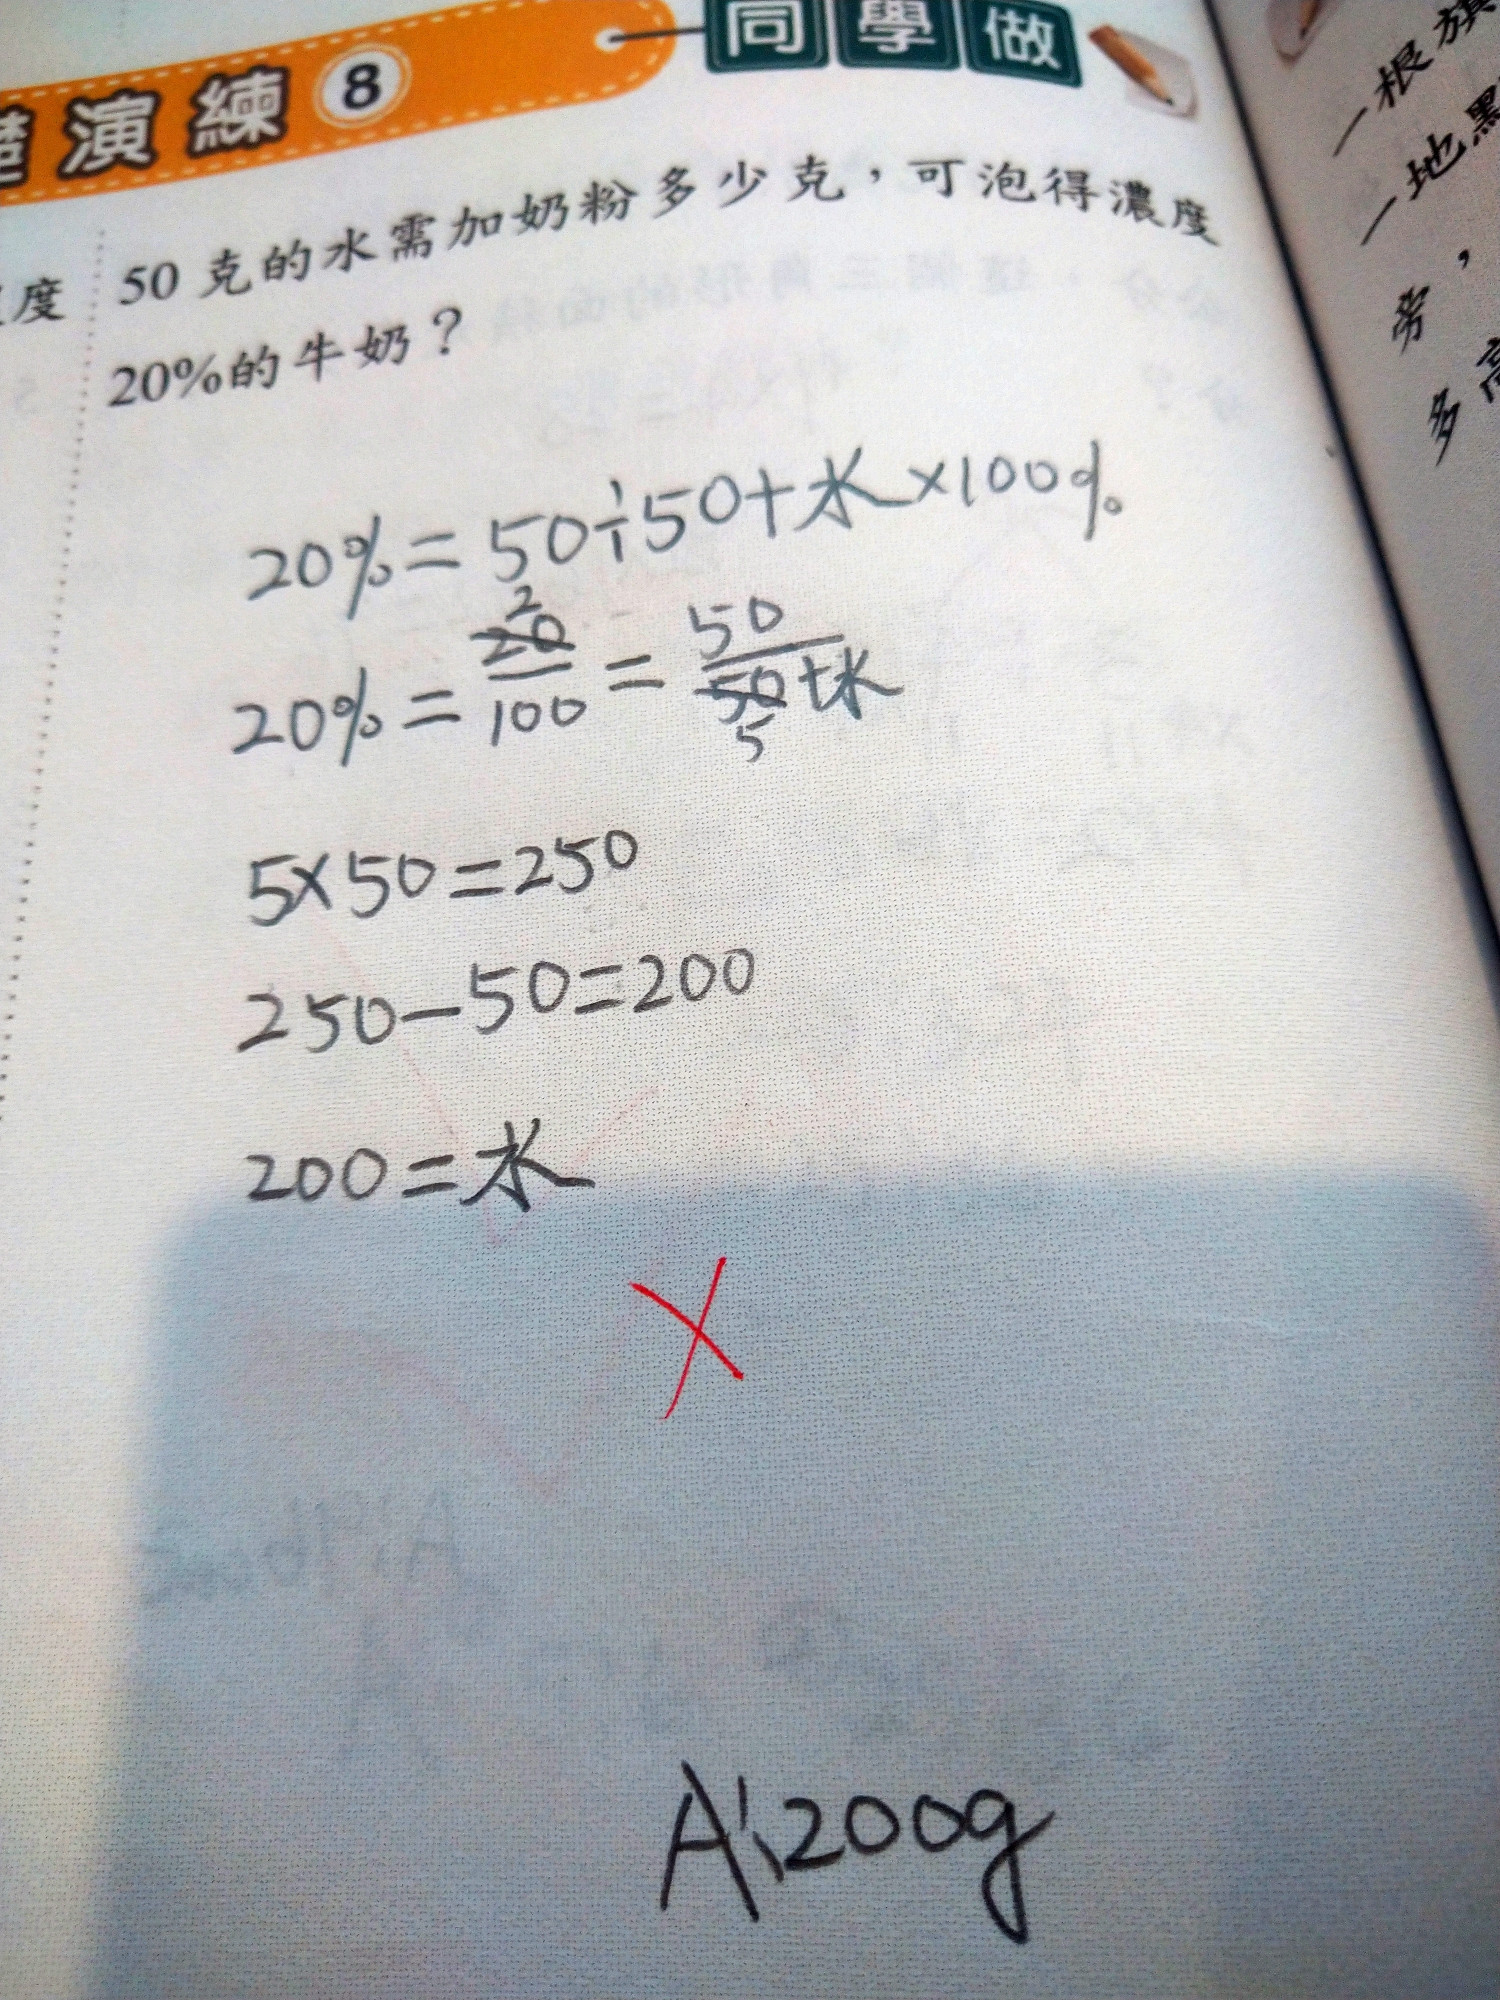 演練 8 同學做
50克的水需加奶粉多少克，可泡得濃度
20%的牛奶？
度
20%=50÷50+水×100%
20%=20/100=50/50+水
2
5
5×50=250
250-50=200
200=水
A:200g
一根旗
一地黑
旁，
多高